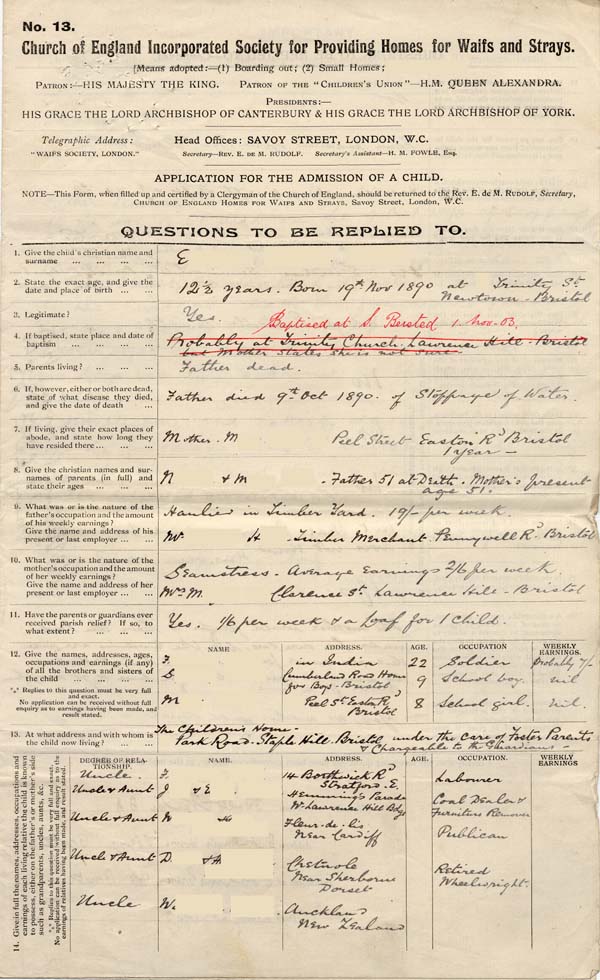 No. 13.
Church of England Incorporated Society for Providing Homes for Waifs and Strays.
(Means adopted:—(1) Boarding out; (2) Small Homes;
PATRON:—HIS MAJESTY THE KING. PATRON OF THE "CHILDREN'S UNION"—H.M. QUEEN ALEXANDRA.
PRESIDENTS:—
HIS GRACE THE LORD ARCHBISHOP OF CANTERBURY & HIS GRACE THE LORD ARCHBISHOP OF YORK.
Telegraphic Address: Head Offices: SAVOY STREET, LONDON, W.C.
"WAIFS SOCIETY, LONDON." Secretary—REV. E. DE M. RUDOLF. Secretary's Assistant—H. M. FOWLE, Esq.
APPLICATION FOR THE ADMISSION OF A CHILD.
NOTE—This Form, when filled up and certified by a Clergyman of the Church of England, should be returned to the Rev. E. de M. RUDOLF, Secretary,
CHURCH OF ENGLAND HOMES FOR WAIFS AND STRAYS, Savoy Street, London, W.C.
QUESTIONS TO BE REPLIED TO.
1. Give the child's christian name and surname ... ... ... ... E
2. State the exact age, and give the date and place of birth ... ... 12½ years. Born 19th Nov 1890 at Trinity St
Newtown - Bristol
3. Legitimate? Yes.
Baptised at S. Bersted 1. Nov. 03.
4. If baptised, state place and date of baptism ... ... ... ... Probably at Trinity Church, Lawrence Hill - Bristol
but Mother states she is not sure
5. Parents living? ... ... ... Father dead.
6. If, however, either or both are dead, state of what disease they died, and give the date of death ... Father died 9th Oct 1890. of Stoppage of Water.
7. If living, give their exact places of abode, and state how long they have resided there ... ... ... Mother. M Peel Street Easton Rd Bristol
1 year —
8. Give the christian names and surnames of parents (in full) and state their ages ... ... ... N & M - Father 51 at Death. Mother's present
age 51.
9. What was or is the nature of the father's occupation and the amount of his weekly earnings?
Give the name and address of his present or last employer ... ...
Haulier in Timber Yard. 19/- per week.
Mr. H - Timber Merchant. Pennywell Rd. Bristol
10. What was or is the nature of the mother's occupation and the amount of her weekly earnings?
Give the name and address of her present or last employer ... ...
Seamstress - Average Earnings 2/6 per week
Mrs M. Clarence St. Lawrence Hill - Bristol
11. Have the parents or guardians ever received parish relief? If so, to what extent? ... ... ... Yes. 1/6 per week & a Loaf for 1 Child.
12. Give the names, addresses, ages, occupations and earnings (if any) of all the brothers and sisters of the child ... ... ... ...
"*" Replies to this question must be very full and exact.
No application can be received without full enquiry as to earnings having been made, and result stated.
NAME ADDRESS. AGE. OCCUPATION WEEKLY EARNINGS.
F. in India 22 Soldier Probably 7/-
S Cumberland Road Home for Boys - Bristol 9 School boy. nil
M Peel St Easton Rd Bristol 8 School girl. nil.
13. At what address and with whom is the child now living? ... ... The Children's Home -
Park Road. Staple Hill. Bristol under the Care of Foster Parents
& Chargeable to the Guardians -
14. Give in full the names, addresses, occupations and earnings of each living relative the child is known to possess, either on the father's or mother's side such as grandparents, uncles, aunts, &c.
"*" Replies to this question must be very full and exact.
No application can be received without full enquiry as to the earnings of relatives having been made, and result stated.
DEGREE OF RELATIONSHIP. NAME ADDRESS. AGE. OCCUPATION WEEKLY EARNINGS
Uncle. F. 14 Borthwick Rd Stratford. E Labourer
Uncle & Aunt J & E. Hemmings Parade Lawrence Hill Bdge Coal Dealer & Furniture Remover
Uncle & Aunt W & Fleur-de-lis near Cardiff Publican
Uncle & Aunt D. & A Chetnole Near Sherborne Dorset Retired Wheelwright.
Uncle W. Auckland New Zealand